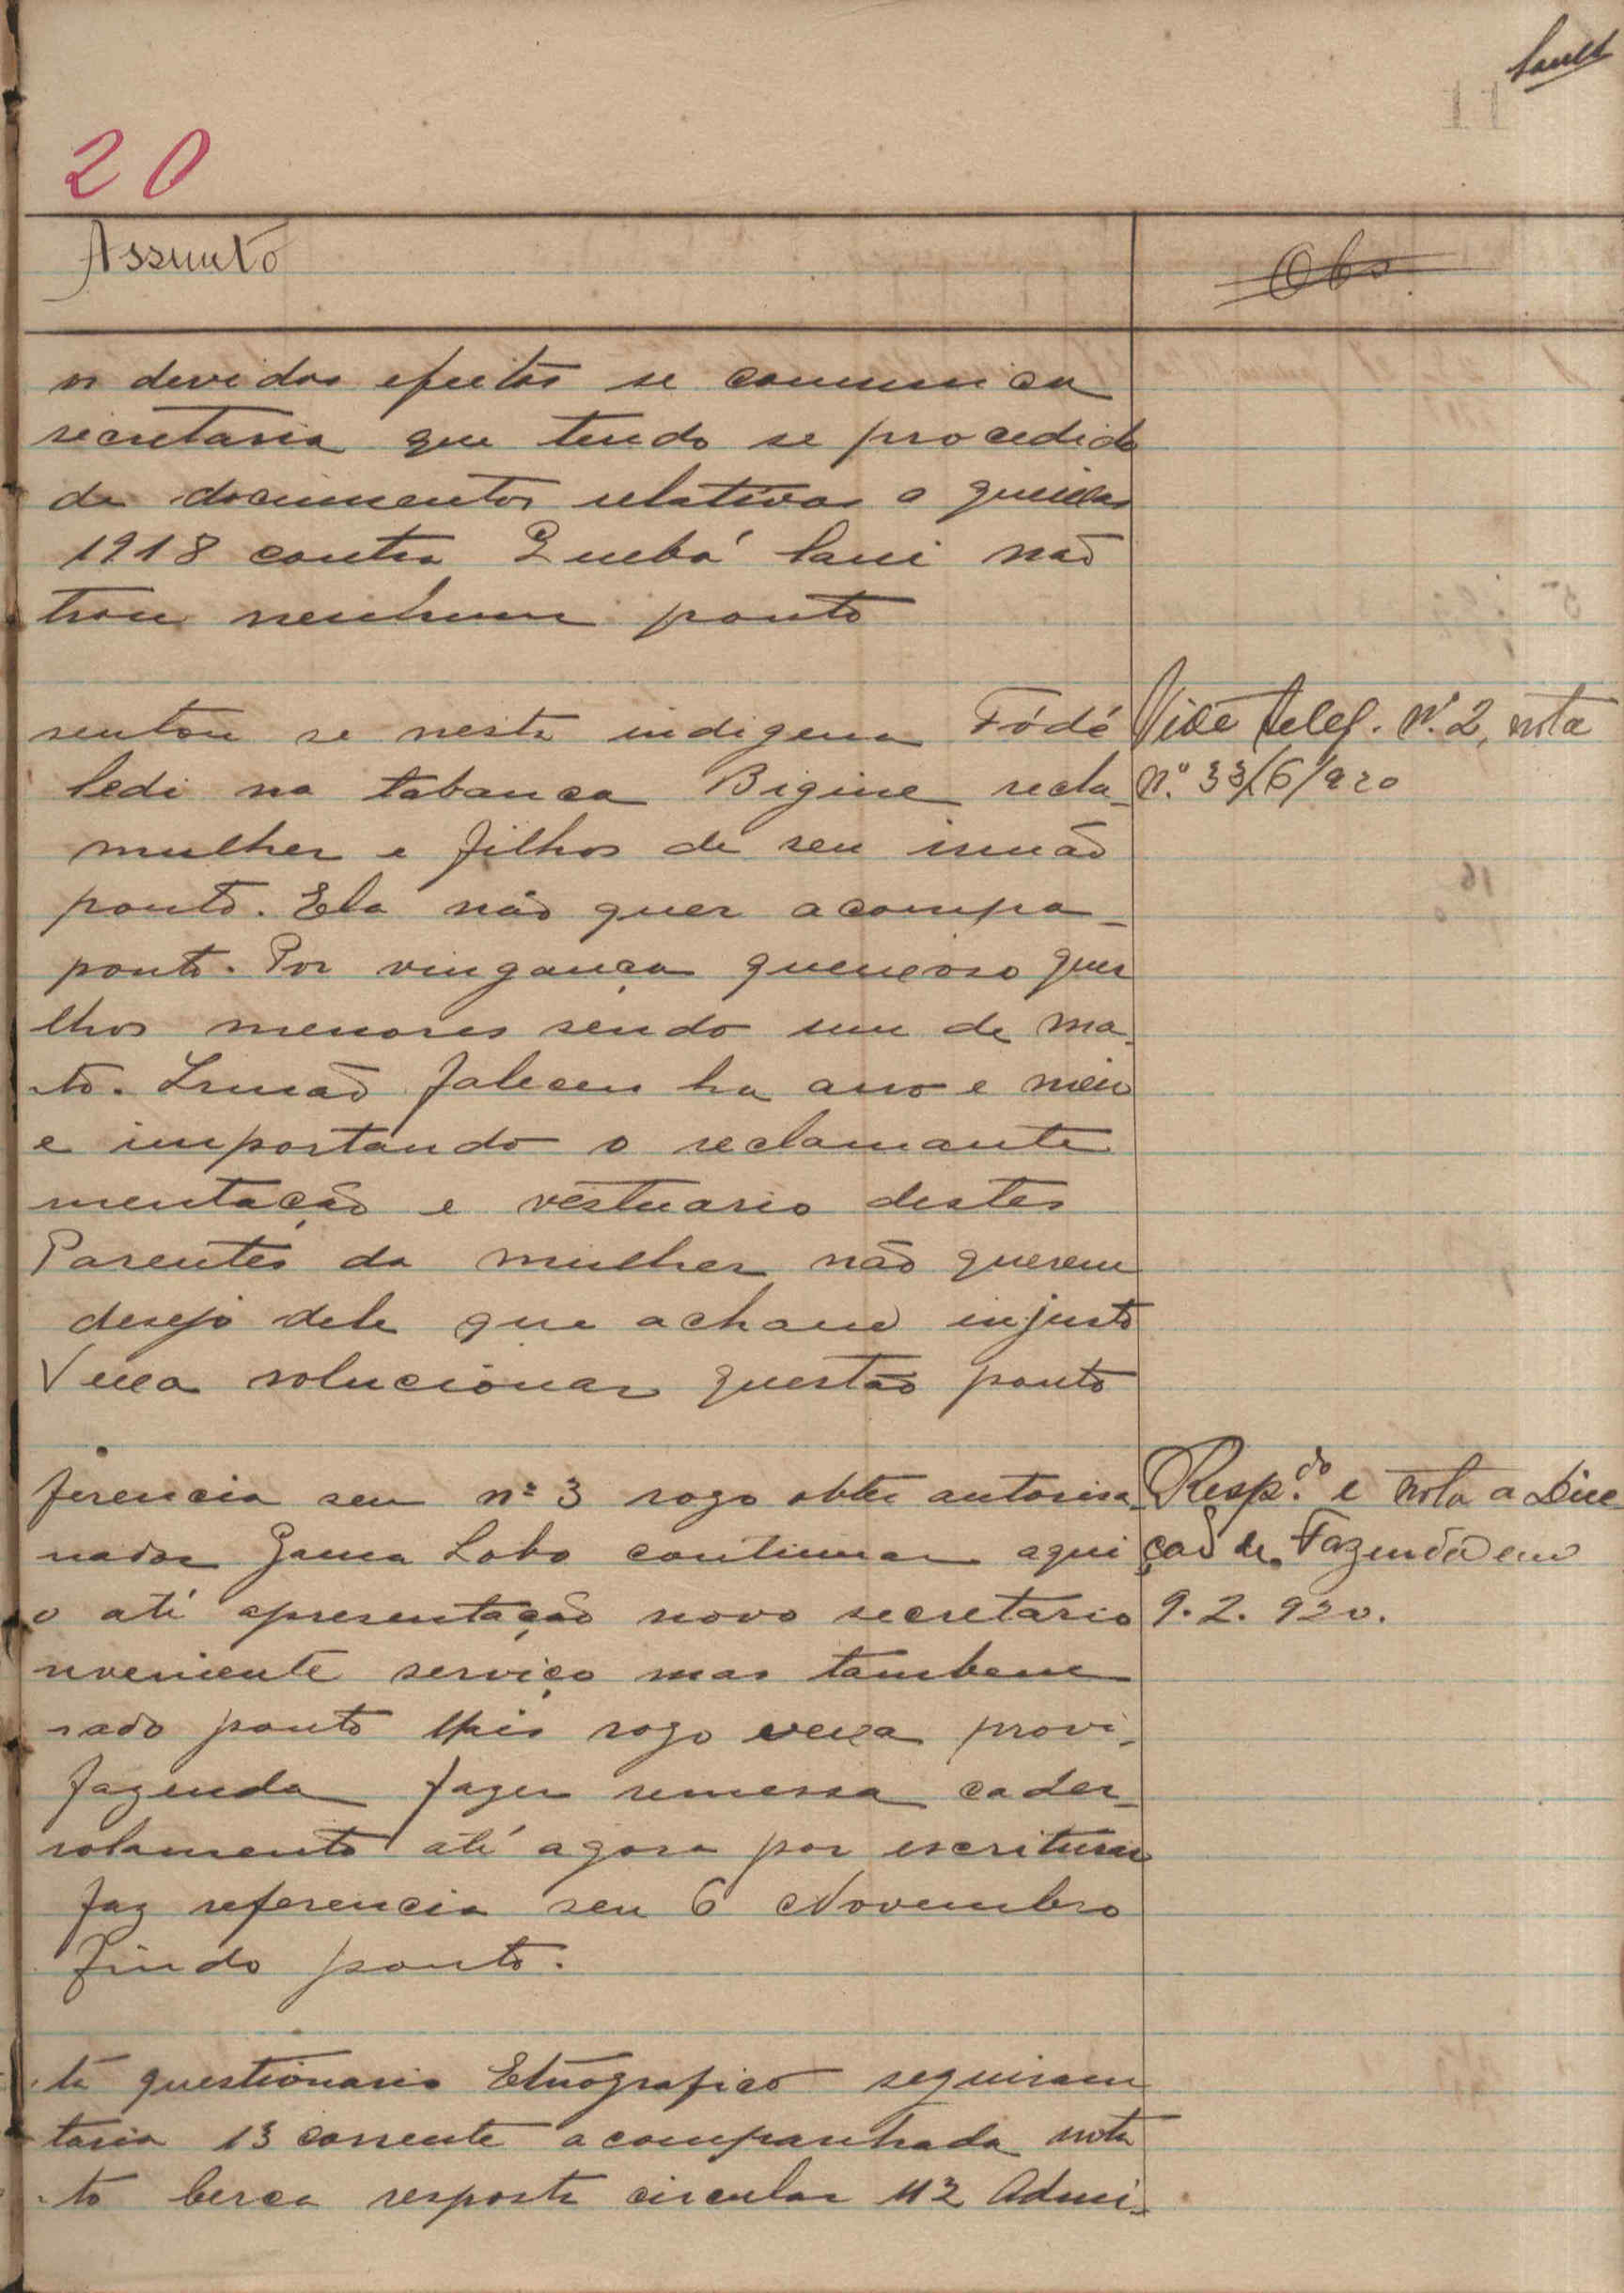 20
Assunto
Obs.
os devidos efeitos se comunica
secretaria que tendo se procedido
de documentos relativos a queixas
1918 contra Quebá Sani não
trou nenhum ponto
sentou se nesta indigena Fódé
Vide teleg. Nº 2, nota
ledi na tabanca Bigine recla-
Nº 33/6/920
mulher e filhos de seu irmão
ponto. Ela não quer acompa-
ponto. Por vingança quer
lhos menores sendo um de ma-
to. Irmão faleceu ha ano e meio
e importando o reclamante
mentação e vestuario destes
Parentes da mulher não querem
desejo dele que acham injusto
Vexa solucionar questão ponto
ferencia seu nº 3 rogo obter autorisa-
Resp.do e nota a Dire
nador Gama Lobo continuar aqui
ção de Fazenda em
o até apresentação novo secretario
9.2.920.
nveniente serviço mas tambem
rado ponto rogo vexa provi-
fazenda fazer remessa cader-
rolamento até agora por escriturar
faz referencia seu 6 Novembro
findo ponto.
ta questionario Etnografico seguiram
taria 13 corrente acompanhada nota
to cerca resposta circular 112 Admi-